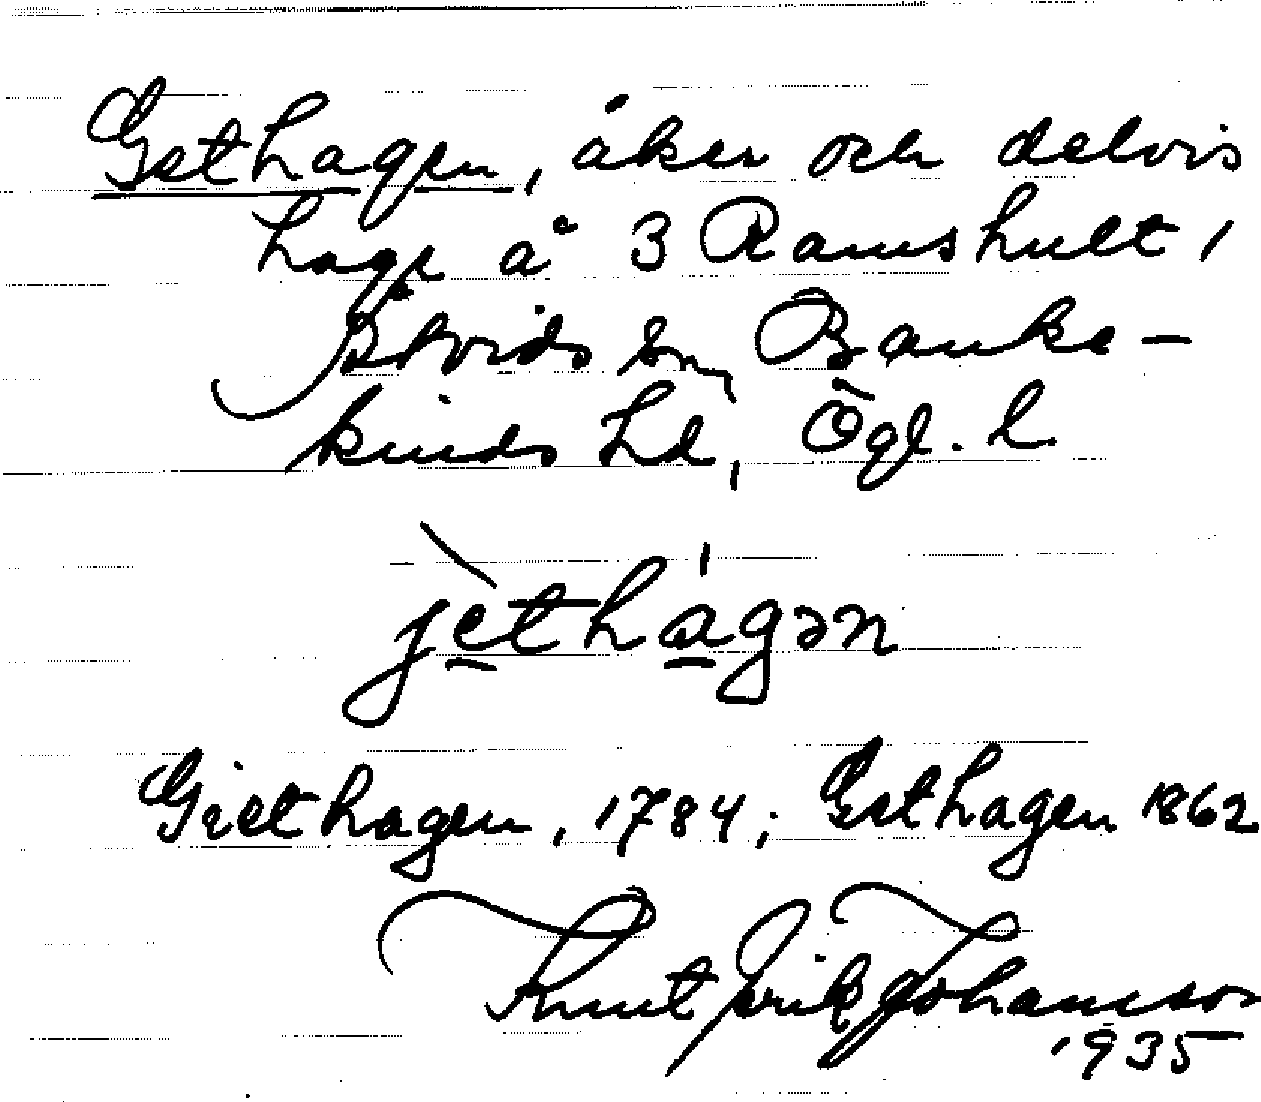 Gethagen, åker och delvis
hage å 3 Ramshult i
Åtvids sn, Banke-
kinds hd, Ögl. l.
jèthágən
Giethagen, 1784; Gethagen 1862
Knut Erik Johansson
1935